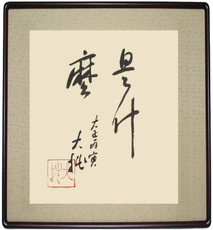 是什
麼
大正丙寅
大拙